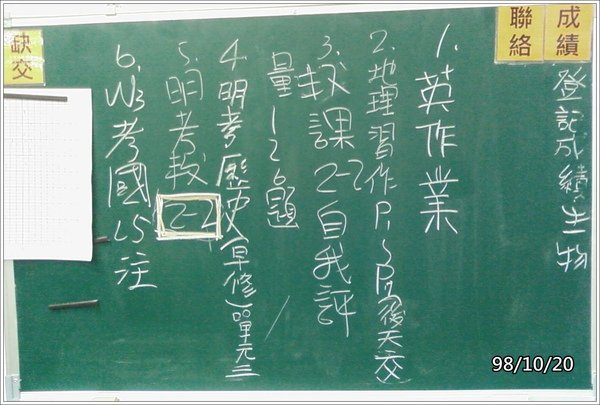 成績
聯絡
登記成績生物
1. 英作業
2. 地理習作P1~P7(後天交)
3. 数課2-2自我評
量126題
4. 明考歷史(卓修)單元三
5. 明考数2-2
6. W3考國L5注
缺交
98/10/20